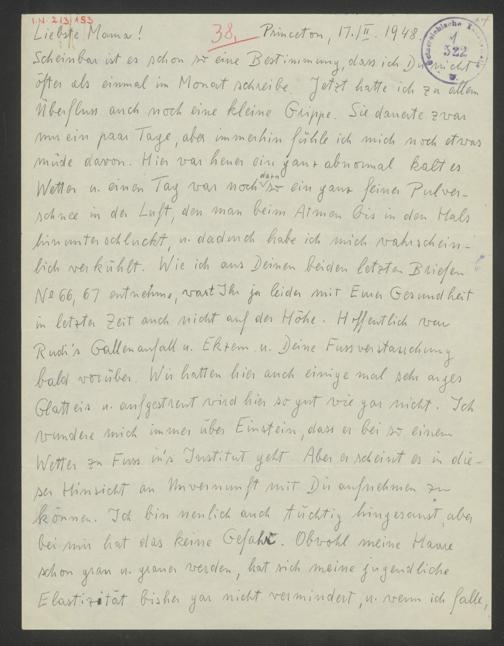 I.N. 213.153
Liebste Mama! 38, Princeton, 17./II. 1948.
Scheinbar ist es schon so eine Bestimmung, dass ich Dir nicht
öfter als einmal im Monat schreibe. Jetzt hatte ich zu allem
Überfluss auch noch eine kleine Grippe. Sie dauerte zwar
nur ein paar Tage, aber immerhin fühle ich mich noch etwas
müde davon. Hier war heuer ein ganz abnormal kaltes
Wetter u. einen Tag war noch dazu so ein ganz feiner Pulver-
schnee in der Luft, den man beim Atmen bis in den Hals
hinunterschluckt, u. dadurch habe ich mich wahrschein-
lich verkühlt. Wie ich aus Deinen beiden letzten Briefen
No 66, 67 entnehme, wart Ihr ja leider mit Eurer Gesundheit
in letzter Zeit auch nicht auf der Höhe. Hoffentlich war
Rudi's Gallenanfall u. Ekzem u. Deine Fussverstauchung
bald vorüber. Wir hatten hier auch einige mal sehr arges
Glatteis u. aufgestreut wird hier so gut wie gar nicht. Ich
wundere mich immer über Einstein, dass er bei so einem
Wetter zu Fuss in's Institut geht. Aber er scheint es in die-
ser Hinsicht an Unvernunft mit Dir aufnehmen zu
können. Ich bin neulich auch tüchtig hingesaust, aber
bei mir hat das keine Gefahr. Obwohl meine Haare
schon grau u. grauer werden, hat sich meine jugendliche
Elastizität bisher gar nicht vermindert, u. wenn ich falle,